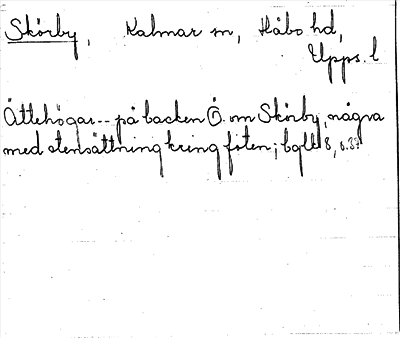 Skörby, Kalmar sn, Håbo hd,
Upps. l
Ättehögar-- på backen Ö. om Skörby, några
med stensättning kring foten; bgll 8, s.37